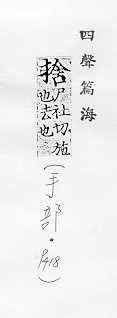 四聲篇海
捨尸社切施
也去也
(手部。P.418)